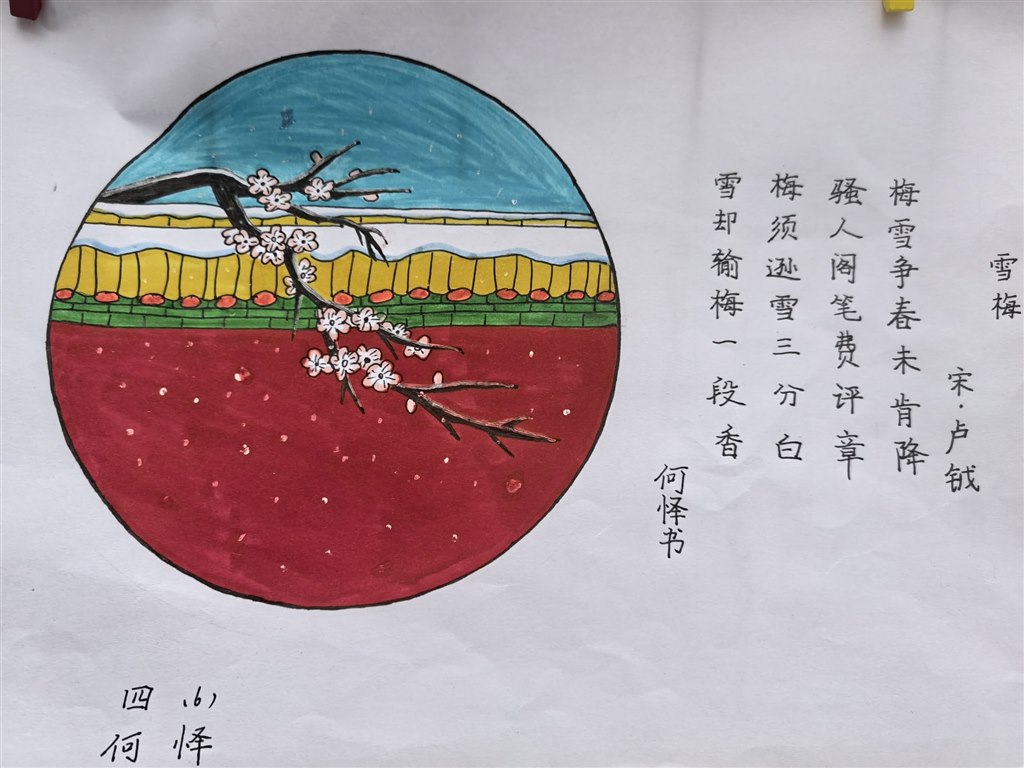 雪梅
宋·卢钺
梅雪争春未肯降
骚人阁笔费评章
梅须逊雪三分白
雪却输梅一段香
何怿书
四(6)
何怿